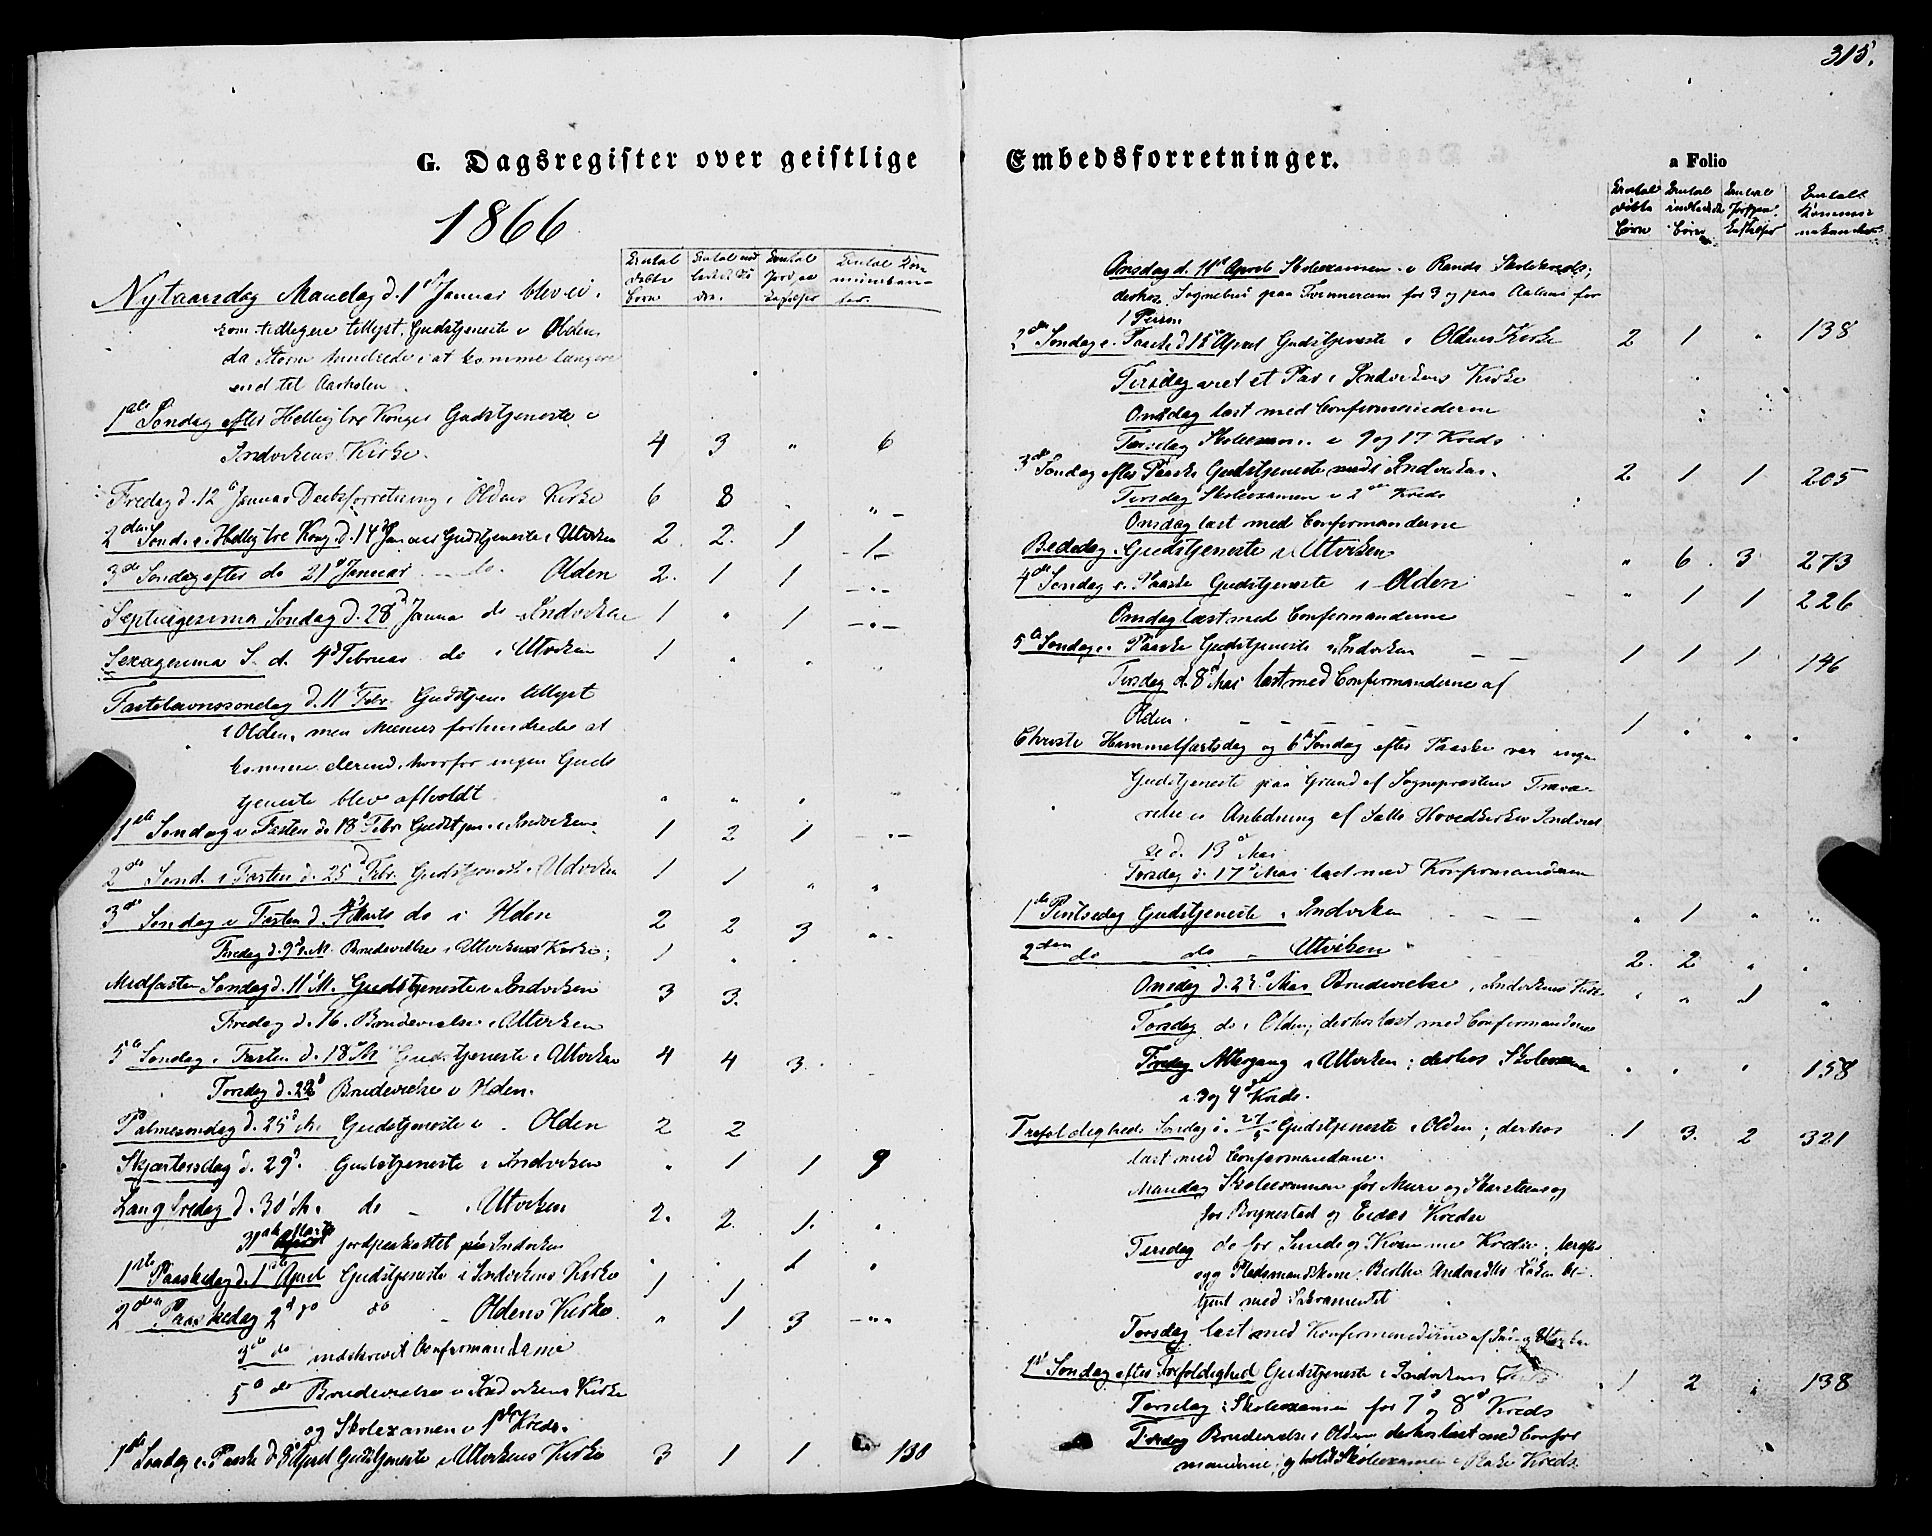 315.
G. Dagsregister over geistlige
Embedsforretninger.
a Folio
1866
Antal døbte Børn
Antal
Antal Jordpaakastelser
Antal Kommunikanter
Nytaarsdag Mandag d. 1ste Januar blev ei,
som tidligere tillyst, Gudstjeneste i Olden,
da Storm hindrede i at komme længere
end til Aarholen.
1ste Søndag efter Hellig tre Konger Gudstjeneste i
Indvikens Kirke. 4 3 " 6
Fredag d. 12 Januar Daabsforretning i Oldens Kirke 6 8 " "
2den Sønd. e. Hellig tre Kong. d. 14 Januar Gudstjeneste i Utviken 2. 2. 1 1
3de Søndag efter do 21 Januar do. Olden 2. 1 1 "
Septuagesima Søndag d. 28 Janua do Indviken 1 " 1 "
Sexagesima S. d. 4d Februar do i Utviken 1 " " "
Fastelavnssøndag d. 11 Febr. Gudstjen. tillyst
i Olden, men forhindrede at
komme derind, hvorfor ingen Guds
tjeneste blev afholdt " " " "
1ste Søndag i Fasten d. 18 Febr. Gudstjen. i Indviken 1 2 1 "
2den Sønd. i Fasten d. 25 Febr. Gudstjeneste Udviken 1 1 " "
3de Søndag i Fasten d. 4 Marts do i Olden 2 2 3 "
Fredag d. 9d M. Brudevielse i Utvikens Kirke; 1 "
Midfasten Søndag d. 11 M. Gudstjeneste i Indviken 3 3.
Fredag d. 16. Brudevielse i Utviken
5 Søndag i Fasten d. 18 M Gudstjeneste i Utviken 4 4 3.
Torsdag d. 22 Brudevielse i Olden.
Palmesøndag d. 25 M. Gudstjeneste i Olden 2 2
Skjærtorsdag d. 29. Gudstjeneste i Indviken " 1 1 9
Langfredag d. 30 M. do Utviken 2. 2. 1. "
31 Marts jordpaakastet paa Indviken " " 1 "
1ste Paaskedag d. 1ste April Gudstjeneste i Indvikens Kirke 1 1
2den Paaskedag 2d do do Oldens Kirke " 1 3 "
3d do indskrevet Confirmanderne
5 do Brudevielse i Indvikens Kirke
og Skolexamen i 1ste Kreds.
1ste Søndag e. Paaske d. 8 April Gudstjeneste i Utvikens Kirke 3 1 1 130
Antal døbte Børn
Antal Børn
Antal Jordpaa-kastelser
Antal Kommunikanter
Onsdag d. 11 April Skolexamen i Rands Skolekreds;
derhos Sognebud paa for 3 og paa for
1 Person
2den Søndag e. Paaske d. 15 April Gudstjeneste i Oldens Kirke 2 1 " 138
Tirsdag viet et Par i Indvikens Kirke
Onsdag læst med Confirmanderne
Torsdag Skolexam. i 9 og 17 Kreds
3die Søndag efter Paaske Gudstjeneste Indviken. 2 1 1 205
Tirsdag Skolexamen i 2den Kreds
Onsdag læst med Confirmanderne
Bededag Gudstjeneste i Utviken " 6. 3 273
4de Søndag e. Paaske Gudstjeneste i Olden " 1 1 226
Onsdag læst med Confirmanderne
5te Søndag e. Paaske Gudstjeneste i Indviken 1 1 1 146
Tirsdag d. 8 Mai læst med Confirmanderne af
Olden. 1 " " "
Christi Himmelfartsdag og 6 Søndag efter Paaske var ingen
Gudstjeneste paa Grund af Sognepræstens Fravæ-
relse i Anledning af Hovedkirken
d. 13 Mai
Torsdag d. 17 Mai læst med Konfirmanderne
1ste Pintsedag Gudstjeneste i Indviken " 1 " "
2den do do Utviken 2. 2 " "
Onsdag d. 23 Mai Brudevielse i Indvikens Kirke " " 1 "
Torsdag do i Olden; derhos læst med Confirmanderne
Fredag Altergang i Utviken; derhos Skolexamen " " " 158
i 3 og 4d Kreds.
Trefoldigheds Søndag d. 27/5 Gudstjeneste i Olden; derhos 1 3. 2 321
læst med Confirmanderne.
Mandag Skolexamen for Muri og
for Brynestad og Eides Kredse
Tirsdag do for Sunde og Kredse;
tjent med Sakramentet
Torsdag læst med Konfirmanderne af
1st Søndag efter Trefoldighed Gudstjeneste i Indvikens Kirke 1 2 " 138
Torsdag Skolexamen for 7 og 8 Kreds
Fredag Brudevielse i Olden derhos læst med Confir
manderne, og holdt Skolexamen i Kreds.